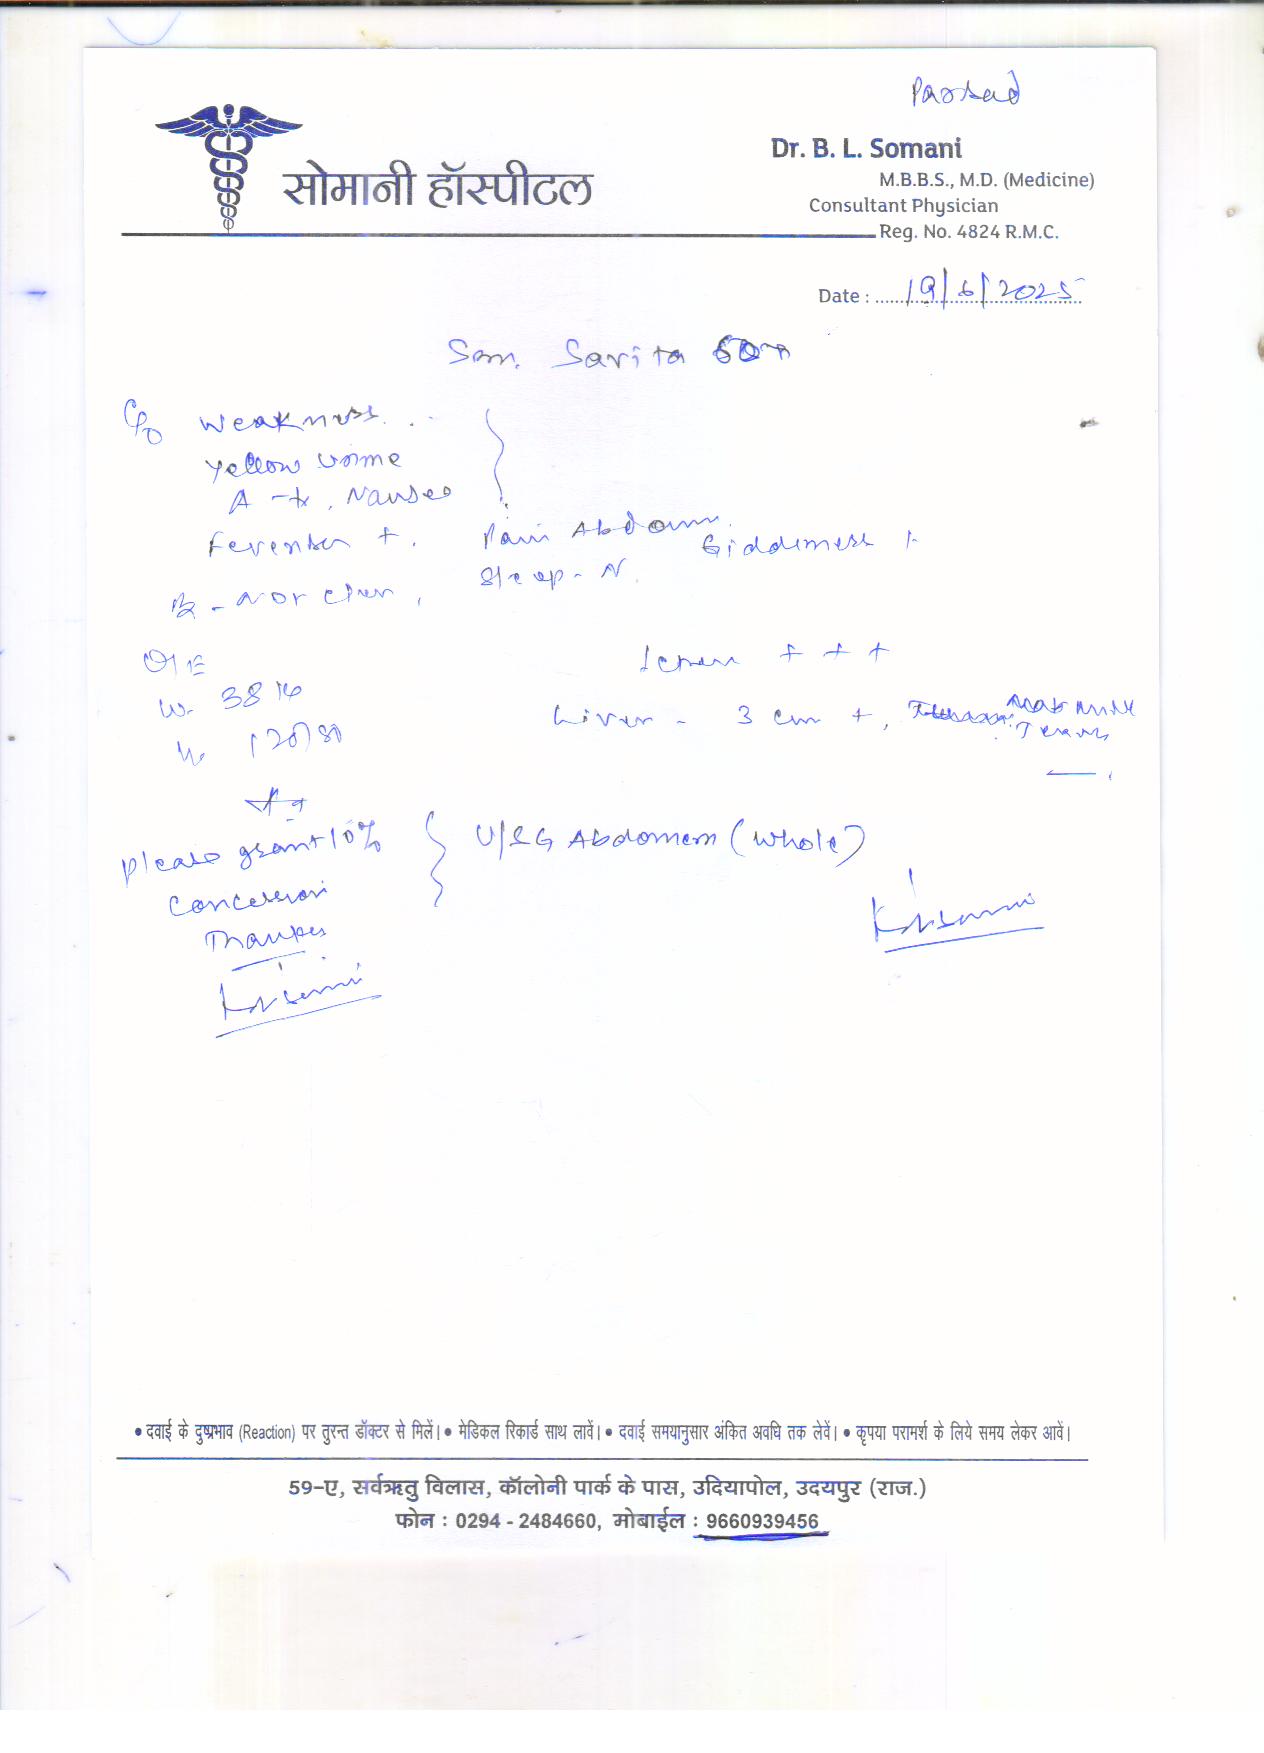 Parsad
सोमानी हॉस्पीटल
Dr. B. L. Somani
M.B.B.S., M.D. (Medicine)
Consultant Physician
Reg. No. 4824 R.M.C.
Date : 19/6/2025
Sm. Savita
C/o Weakness
Yellow Urine
A -+, Nausea
+. Pain Abdomen. Giddiness +
Sleep - N.
O/E +++
W. 38 kg
Liver - 3 cm +,
120/80
Adv
Please grant 10% U/SG Abdomen (Whole)
Concession
Thanks
• दवाई के दुष्प्रभाव (Reaction) पर तुरन्त डॉक्टर से मिलें। • मेडिकल रिकार्ड साथ लावें। • दवाई समयानुसार अंकित अवधि तक लेवें। • कृपया परामर्श के लिये समय लेकर आवें।
59-ए, सर्वऋतु विलास, कॉलोनी पार्क के पास, उदियापोल, उदयपुर (राज.)
फोन : 0294 - 2484660, मोबाईल : 9660939456